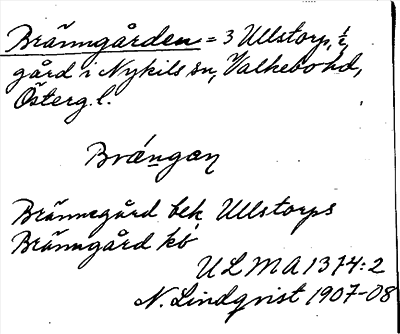 Bränngården = 3 Ullstorp, ½
gård i Nykils sn, Valkebo hd,
Österg. l.
Brä́ngaɳ
Brännegård bek Ullstorps
Bränngård kb
ULMA 1374:2
N. Lindqvist 1907-08